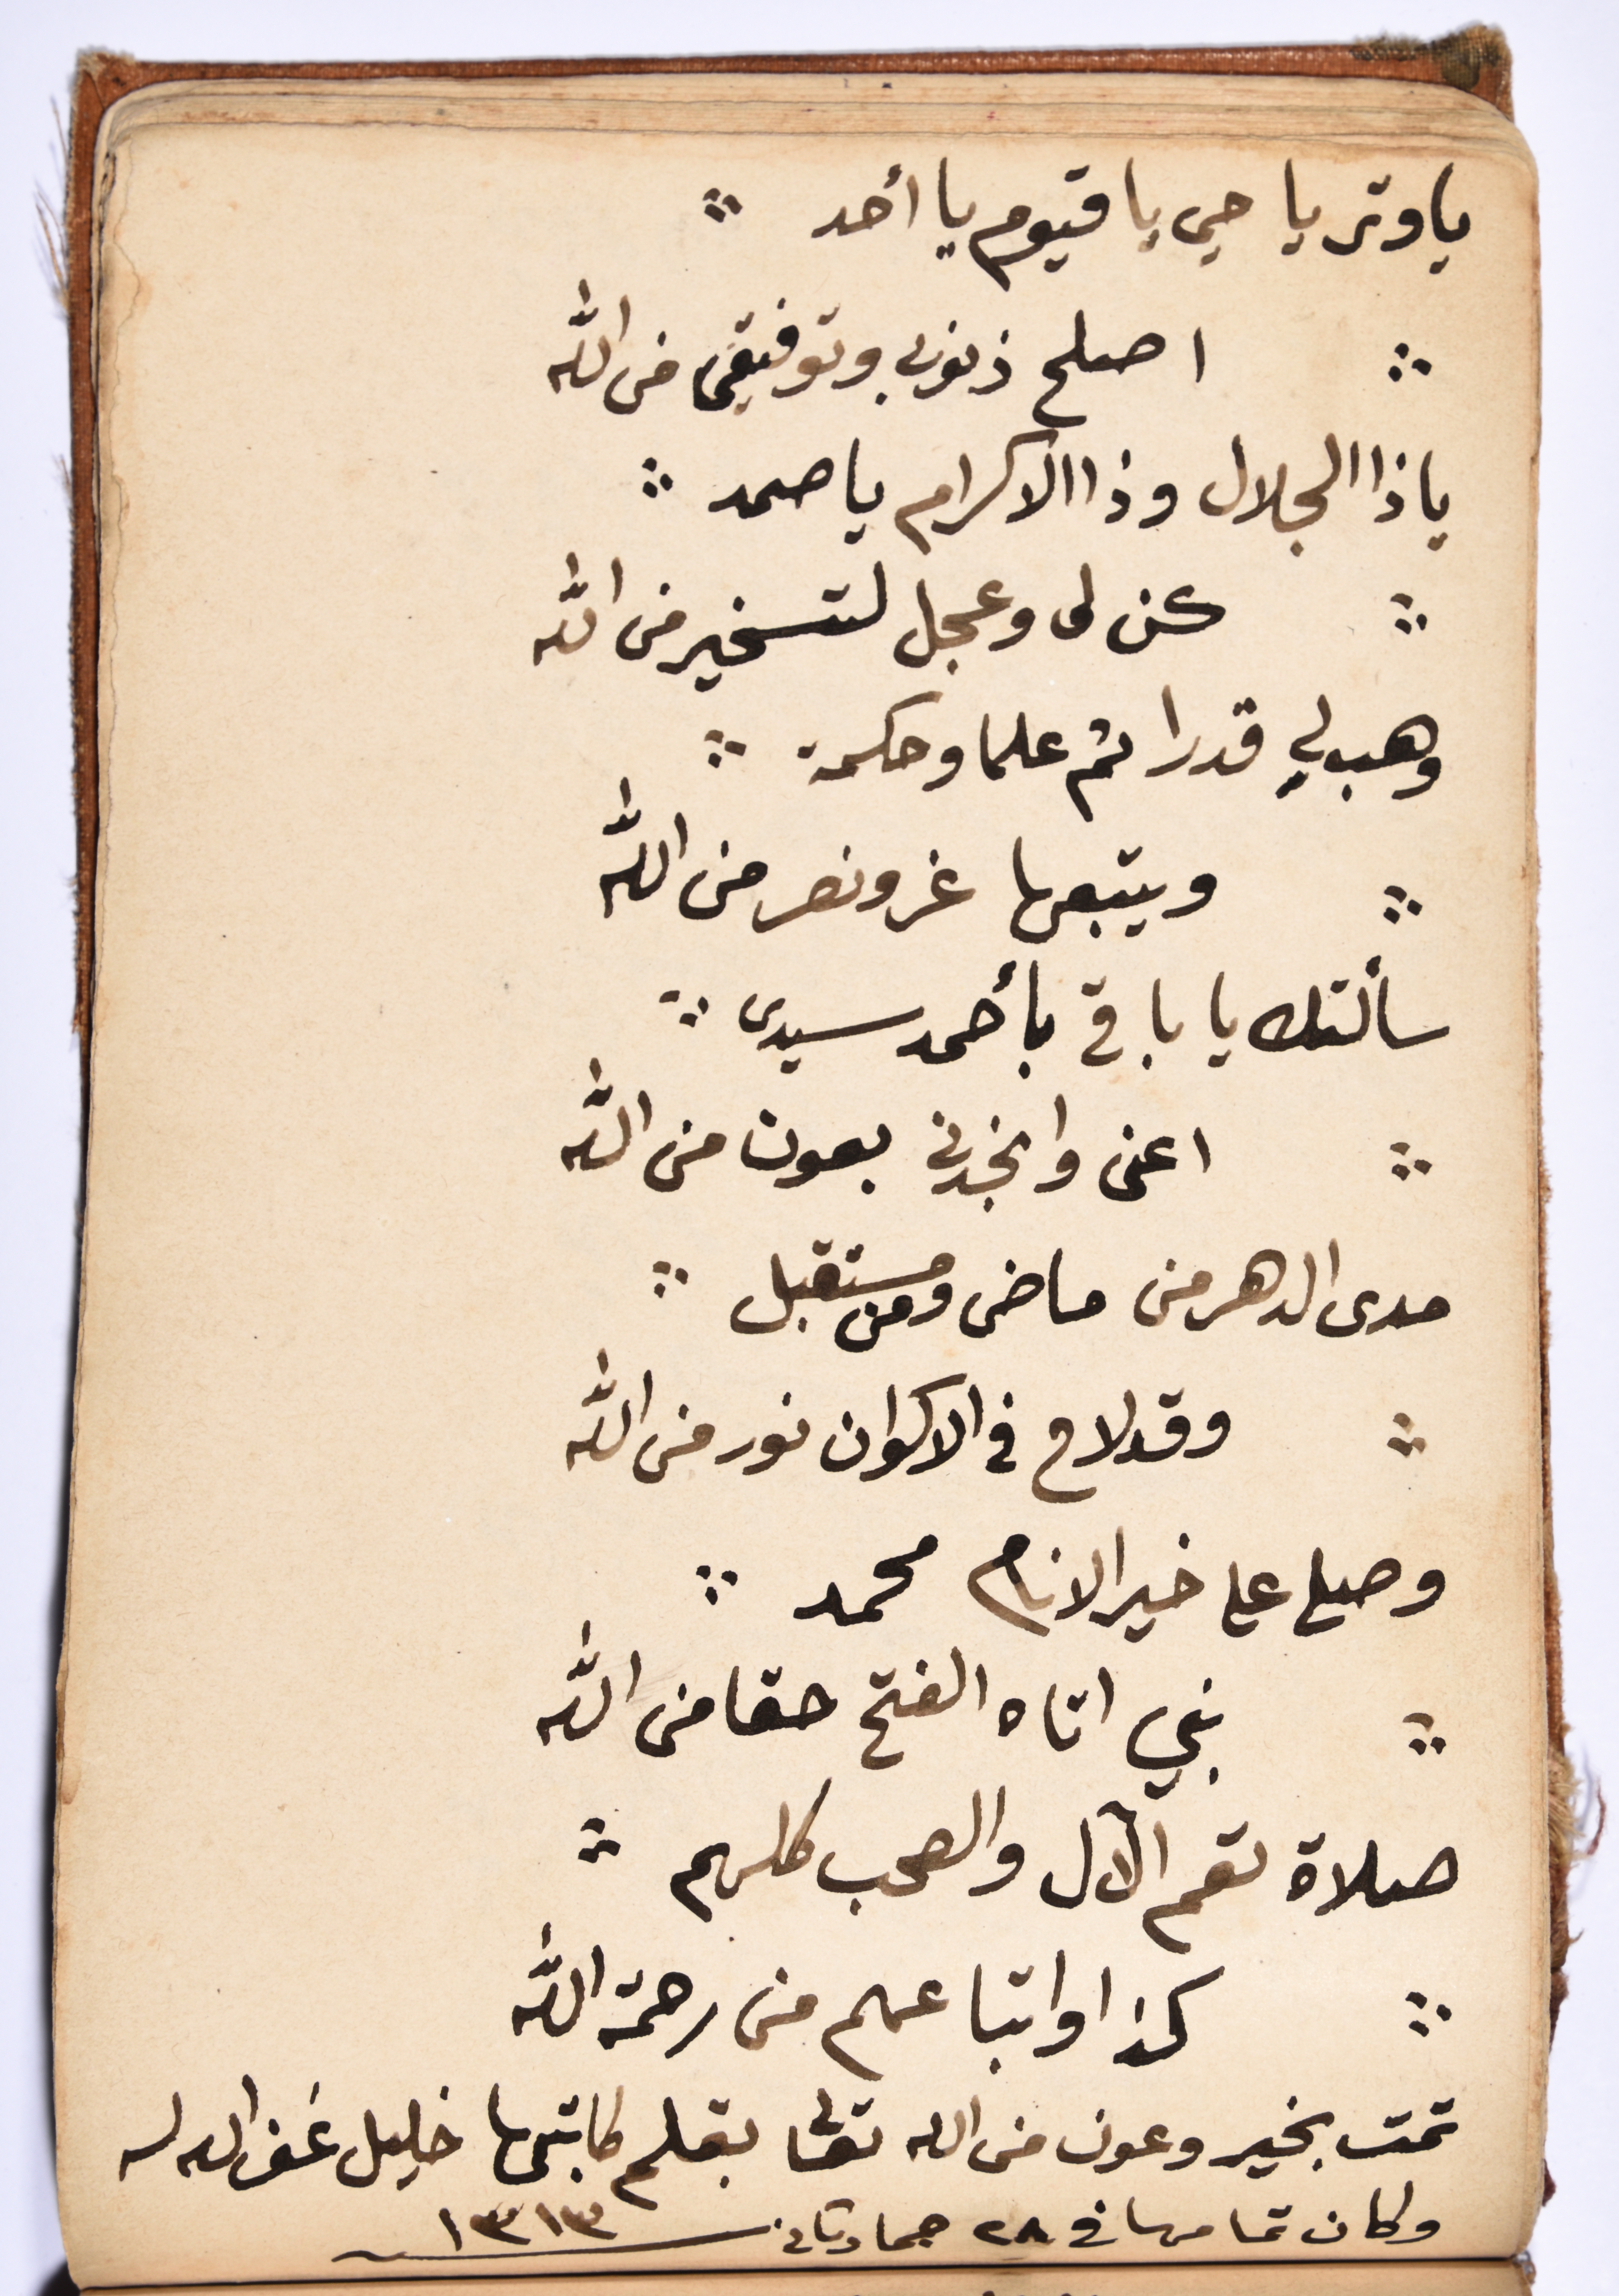 ياوتر يا حي يا قيوم يا أحد
اصلح ذنوبي وتوفيقى من الله
ياذا الجلال وذا الاكرام يا صمد
كن لى وعجل لتسخير من الله
وهب لي قدرا ثم علما وحكمة
ويتبعها عز ونصر من الله
سألتك يا باقي بأحمد سيدى
اعنى وانجدنى بعون من الله
مدى الدهر من ماضى ومن مستقبل
وقد لاح فى الاكوان نور من الله
وصلى على خير الانام محمد
نبي اتاه الفتح حقا من الله
صلاة تعم الآل والصحب كلهم
كذا واتباعهم من رحمة الله
تمت بخير وعون من الله تعالى بقلم كاتبها خليل غفر الله له
وكان تمامها فى ٢٨ جماد ثانى سنة ١٣١٣